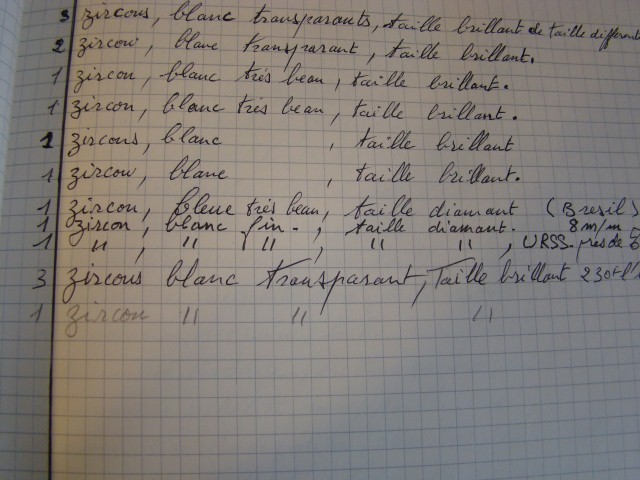 3 zircons, blanc transparants, taille brillant de taille different
2 zircon, blanc transparant, taille brillant.
1 zircon, blanc très beau, taille brillant.
1 zircon, blanc très beau, taille brillant.
1 zircons, blanc , taille brillant
1 zircon, blanc , taille brillant.
1 zircon, bleue très beau, taille diamant (Bresil)
1 zircon, blanc fin. , taille diamant. 8 m/m
1 " , " " , " " , URSS. près de
3 zircons blanc transparant, Taille brillant
1 zircon " " "